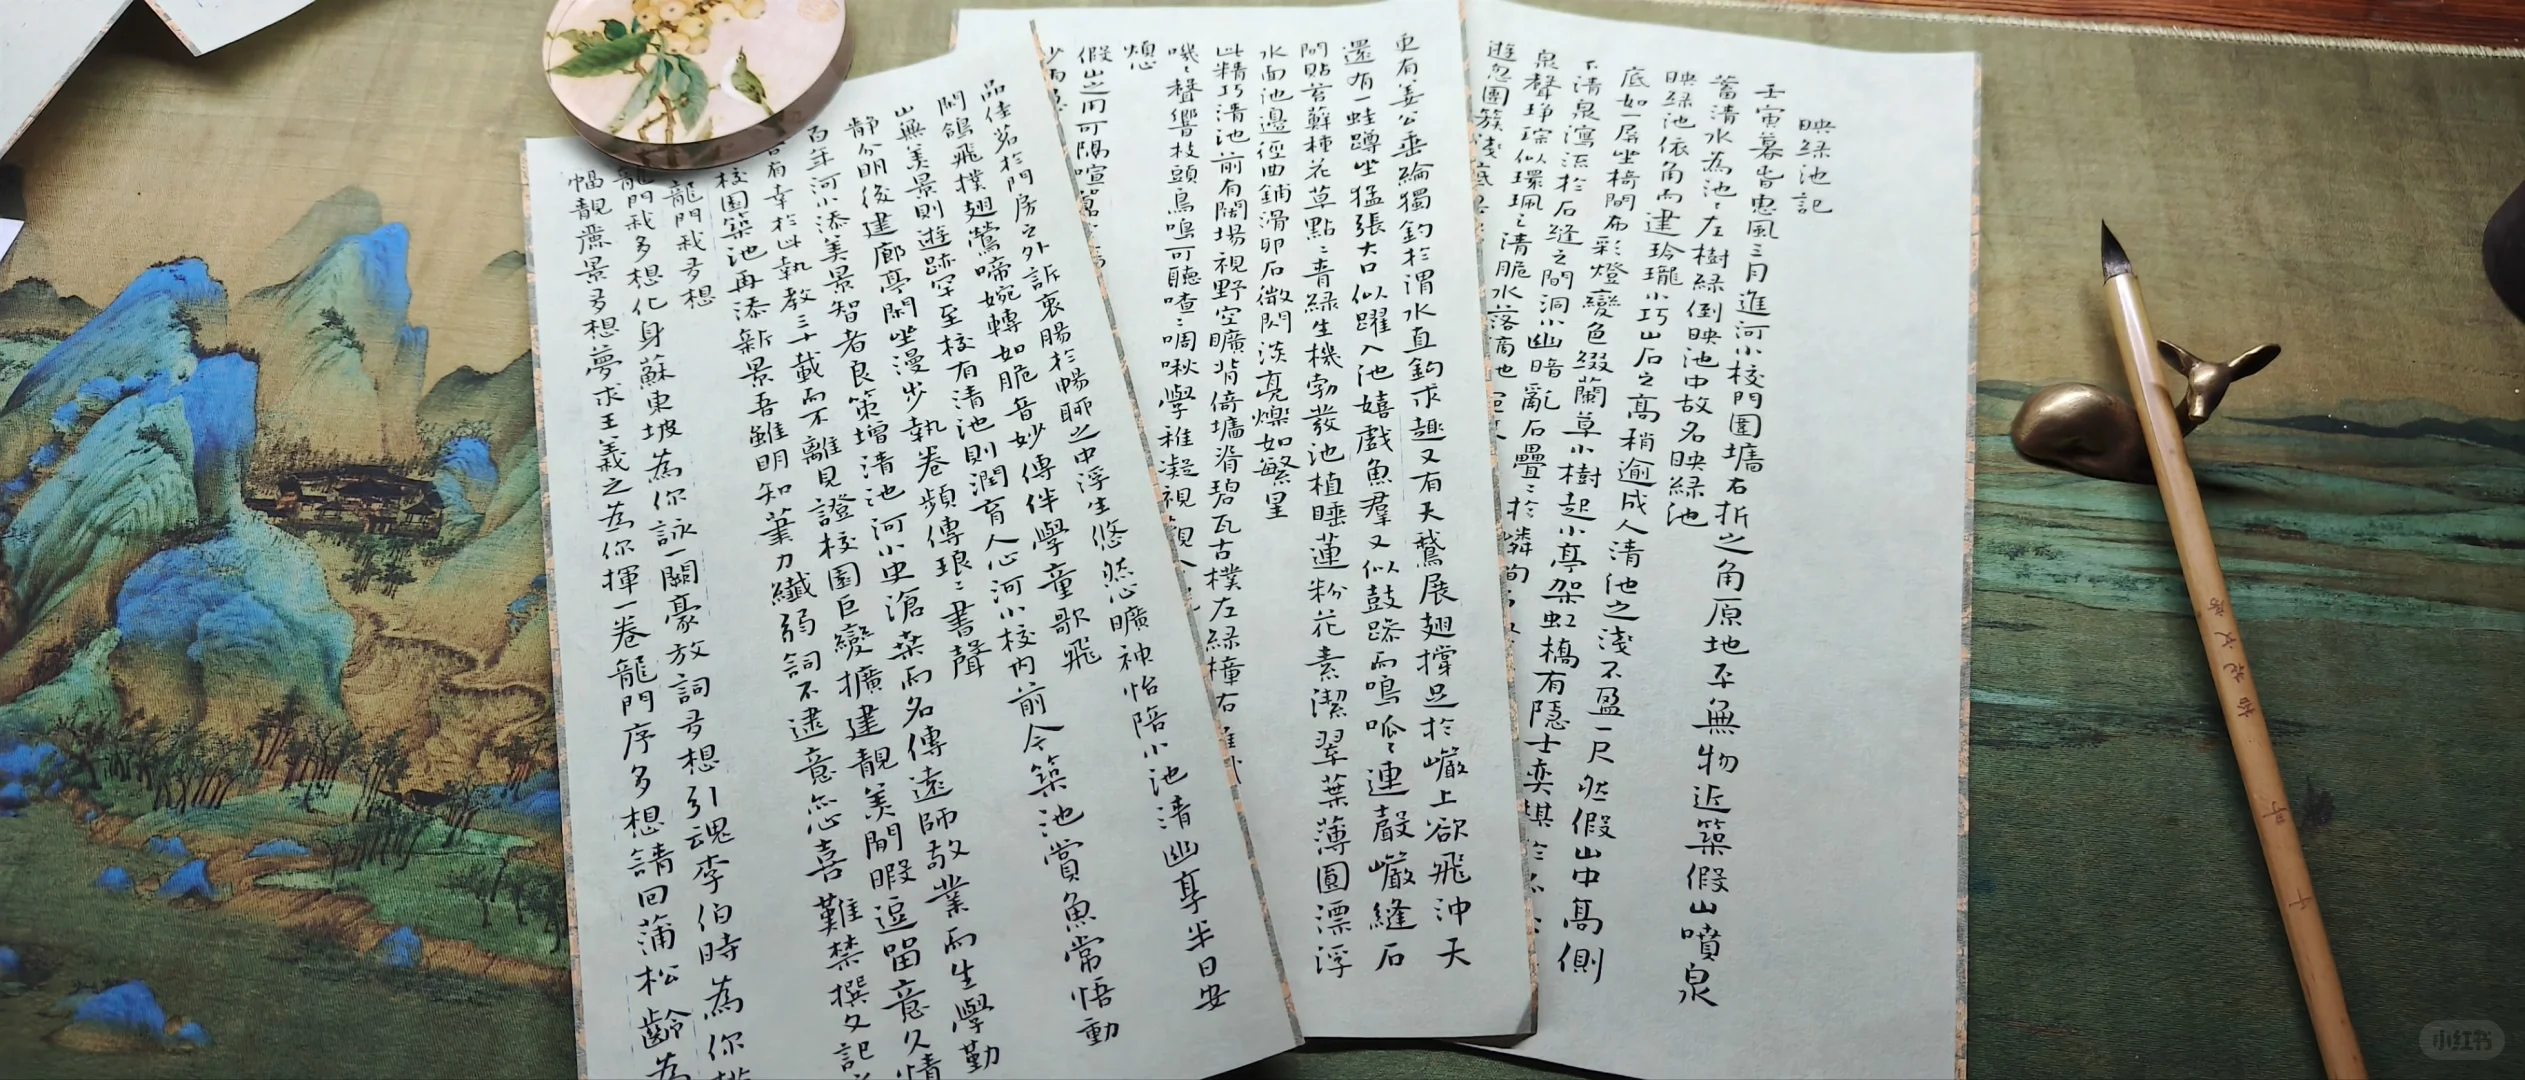 映緑池記
壬寅暮皆惠風三月進河小校門圍墻右折之角原地平無物近築假山噴泉
蓄清水為池池左樹緑倒映池中故名映緑池
映緑池依角而建玲瓏小巧山石之高稍逾成人清池之淺不盈一尺然假山中高側
底如一屏坐椅間布彩燈變色綴蘭草小樹起小亭架虹橋有隱士奕棋於
下清泉瀉流於石縫之間洞小幽暗亂石疊疊於嶙峋
泉聲琤琮似環珮之清脆水落滴池
遊忽團簇淺底
更有姜公垂綸獨釣於渭水直鈎求趣又有天鵝展翅撑足於巖上欲飛沖天
還有一蛙蹲坐猛張大口似躍入池嬉戲魚羣又似鼓躁而鳴呱呱連聲巖縫石
間貼苔蘚種花草點點青緑生機勃發池植睡蓮粉花素潔翠葉薄圓漂浮
水面池邊徑曲鋪滑卵石微閃淡亮爍如繁星
此精巧清池前有闊場視野空曠背倚墻脊碧瓦古樸左緑橦右
嘰嘰聲響枝頭鳥鳴可聽喳喳啁啾學稚凝視觀
煩
假山之用可隔喧
少雨
品佳茗於門房之外訴衷腸於暢聊之中浮生悠然心曠神怡陪小池清幽享半日安
閑鴿飛撲翅鶯啼婉轉如脆音妙傳伴學童歌飛
山無美景則遊跡罕至校有清池則潤育人心河小校内前今築池賞魚常悟動
靜分明後建廊亭閑坐漫步執卷頻傳琅琅書聲
百年河小添美景智者良策增清池河小史滄桑而名傳遠師敬業而生學勤
吾有幸於此執教三十載而不離見證校園巨變擴建靚美閒暇逗留意久情
校園築池再添新景吾雖明知筆力纖弱詞不逮意忘喜難禁撰文記
龍門我多想
龍門我多想化身蘇東坡為你詠一闋豪放詞多想引魂李伯時為你
幅靚麗景多想夢求王羲之為你揮一卷龍門序多想請回蒲松齡為
善文房
小红书